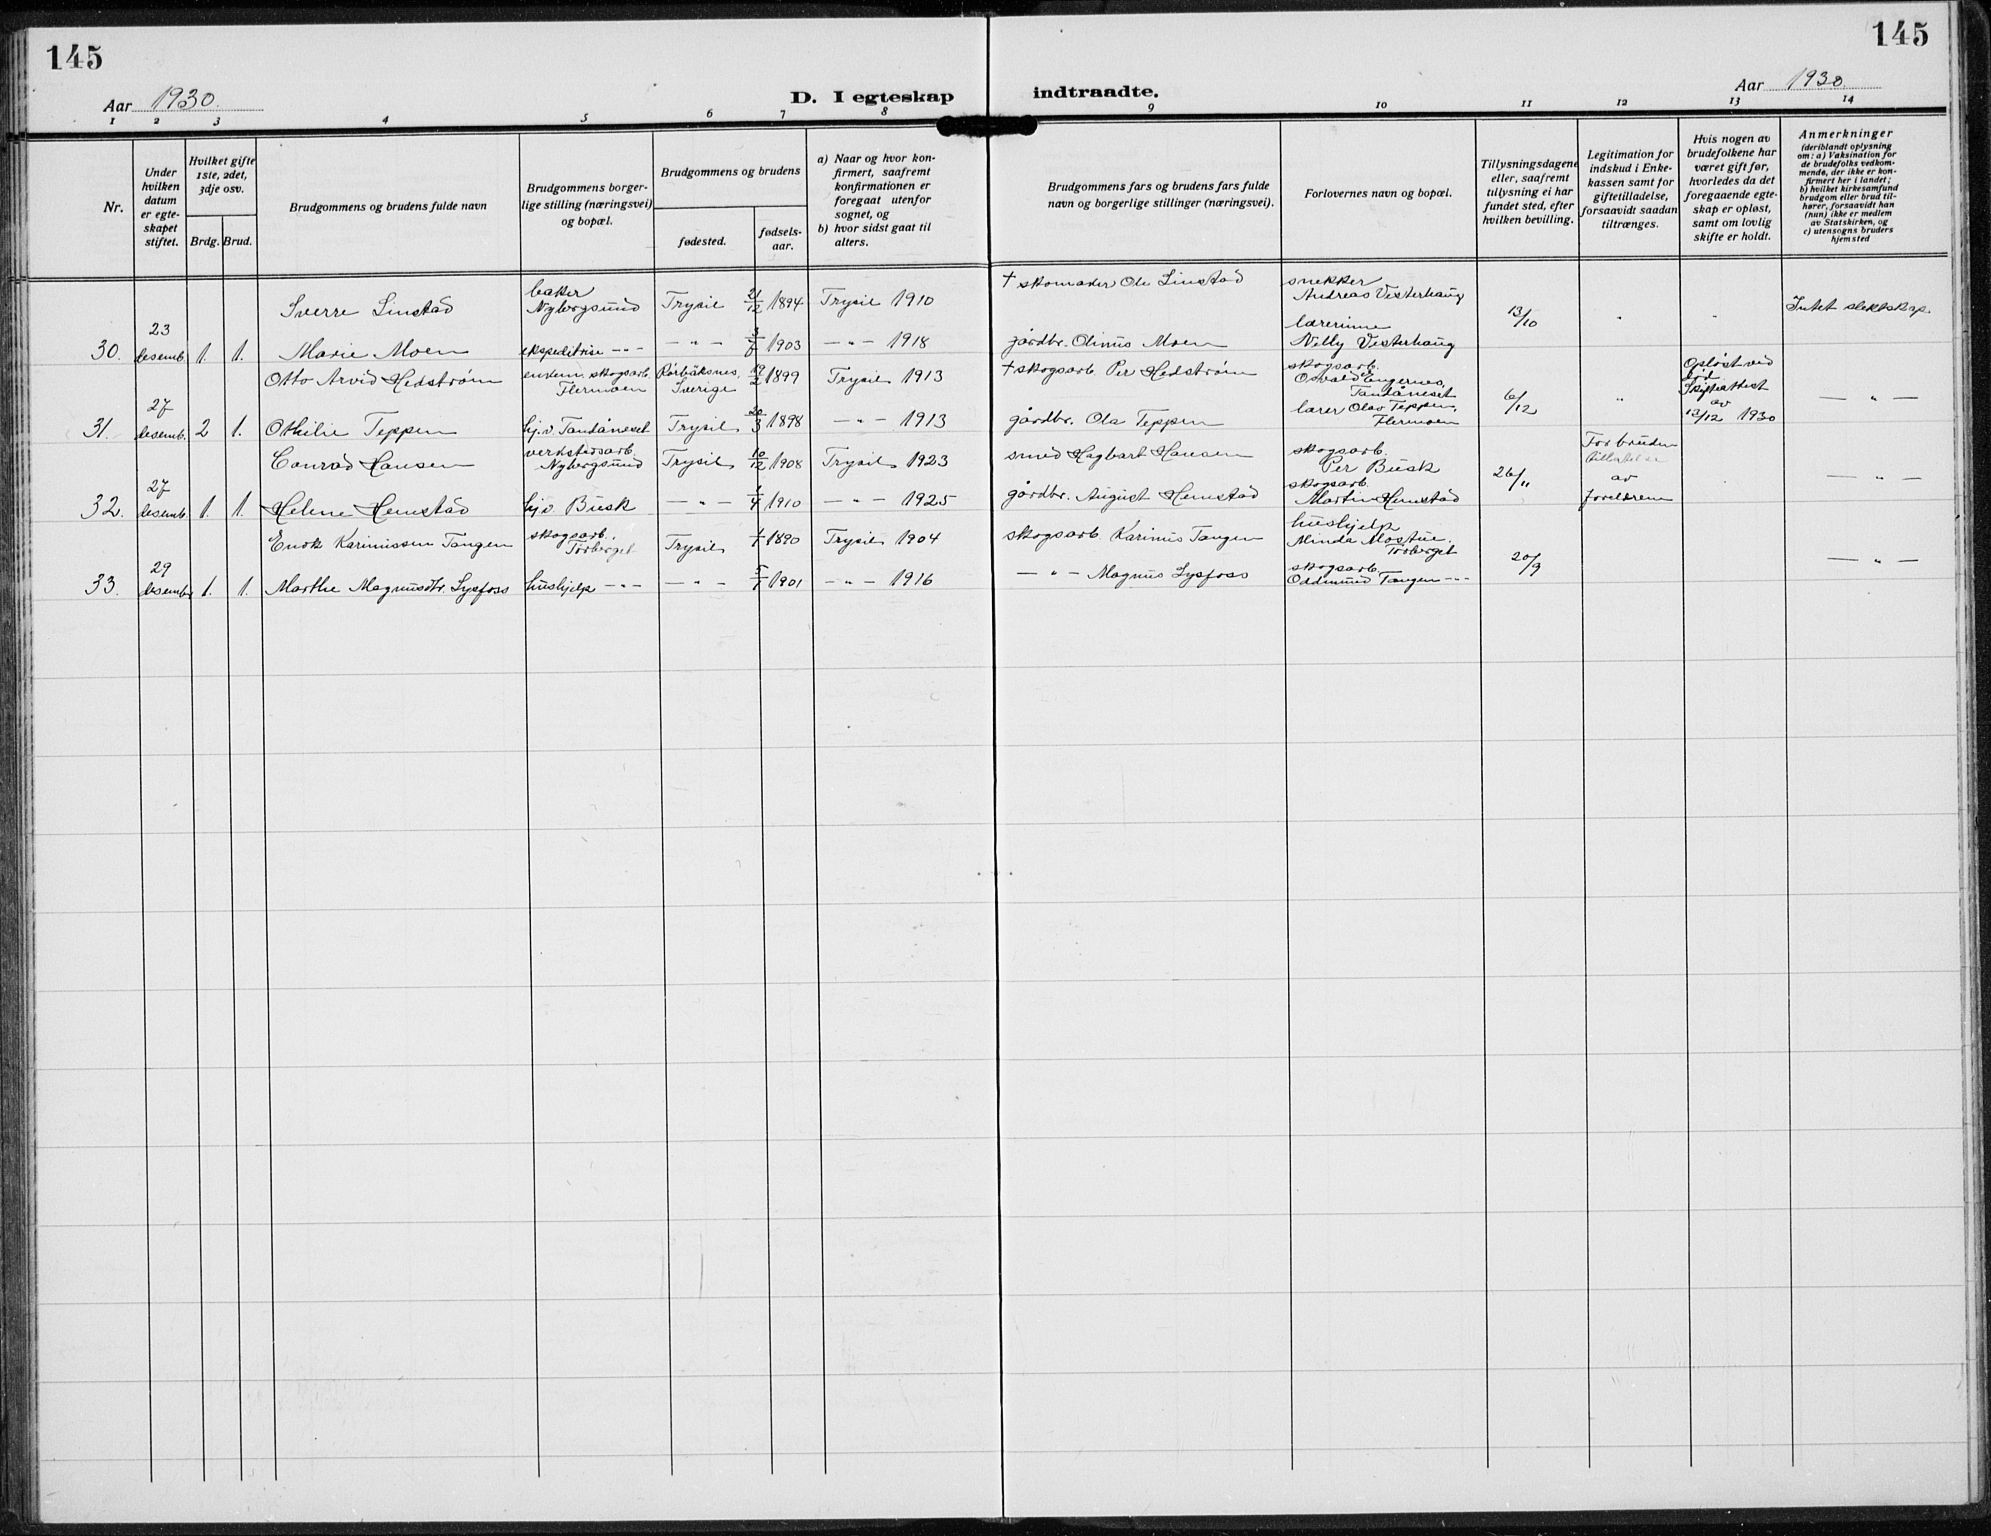 145
145
Aar 1930.
D. I egteskap indtraadte.
Aar 1930
1 2 3 4 5 6 7 8 9 10 11 12 13 14
Nr.
Under hvilken datum er egteskapet stiftet.
Hvilket gifte 1ste, 2det, 3dje osv.
Brdg. Brud.
Brudgommens og brudens fulde navn
Brudgommens borgerlige stilling (næringsvei) og bopæl.
Brudgommens og brudens
fødested.
fødselsaar.
a) Naar og hvor konfirmert, saafremt konfirmationen er foregaat utenfor sognet, og
b) hvor sidst gaat til alters.
Brudgommens fars og brudens fars fulde navn og borgerlige stillinger (næringsvei).
Forlovernes navn og bopæl.
Tillysningsdagene eller, saafremt tillysning ei har fundet sted, efter hvilken bevilling.
Legitimation for indskud i Enkekassen samt for giftetilladelse, forsaavidt saadan tiltrænges.
Hvis nogen av brudefolkene har været gift før, hvorledes da det foregaaende egteskap er opløst, samt om lovlig skifte er holdt.
Anmerkninger
(deriblandt oplysning om: a) Vaksination for de brudefolks vedkommende, der ikke er konfirmert her i landet;
b) hvilket kirkesamfund brudgom eller brud tilhører, forsaavidt han (hun) ikke er medlem av Statskirken, og
c) utensogns bruders hjemsted
Sverre Linstad baker Nybergsund Trysil 21/12 1894 Trysil 1910 † skomaker Ole Linstad snekker Andreas Vesterhaug 13/10 " " Intet slektskap.
30. 23 desemb. 1. 1. Marie Moen ekspeditrise -"- -"- 3/7 1903 -"- 1918 gårdbr. Olinus Moen lærerinne Nelly Vesterhaug
Otto Arvid Hedstrøm enkem. skogsarb. Flermoen Rörbäksnes, Sverige 19/2 1899 Trysil 1913 † skogsarb. Per Hedstrøm skogsarb. Osvald Engernes, Tandåneset 6/12 " Opløst ved død Skifteattest av 12/12 1930 -"-
31. 27 desemb. 2 1. Othilie Teppen hj.v. Tandåneset Trysil 20/3 1898 -"- 1913 gårdbr. Ola Teppen lærer Olav Teppen, Flermoen
Conrad Hansen verkstedsarb. Nybergsund Trysil 10/12 1908 Trysil 1923 smed Hagbart Hansen skogsarb. Per Busk 26/11 For bruden tillatelse av foreldrene -"-
32. 27 desemb. 1. 1. Helene Hemstad hj.v. Busk -"- 1/4 1910 -"- 1925 gårdbr. August Hemstad skogsarb. Martin Hemstad
Enok Karinussen Tangen skogsarb. Törberget Trysil 1/7 1890 Trysil 1904 skogsarb. Karinus Tangen hushjelp Minda Mostue. Törberget 20/9 -"-
33. 29 desember 1. 1. Marthe Magnusdtr. Lysfoss hushjelp -"- -"- 5/1 1901 -"- 1916 -"- Magnus Lysfoss skogsarb. Oddmund Tangen -"-